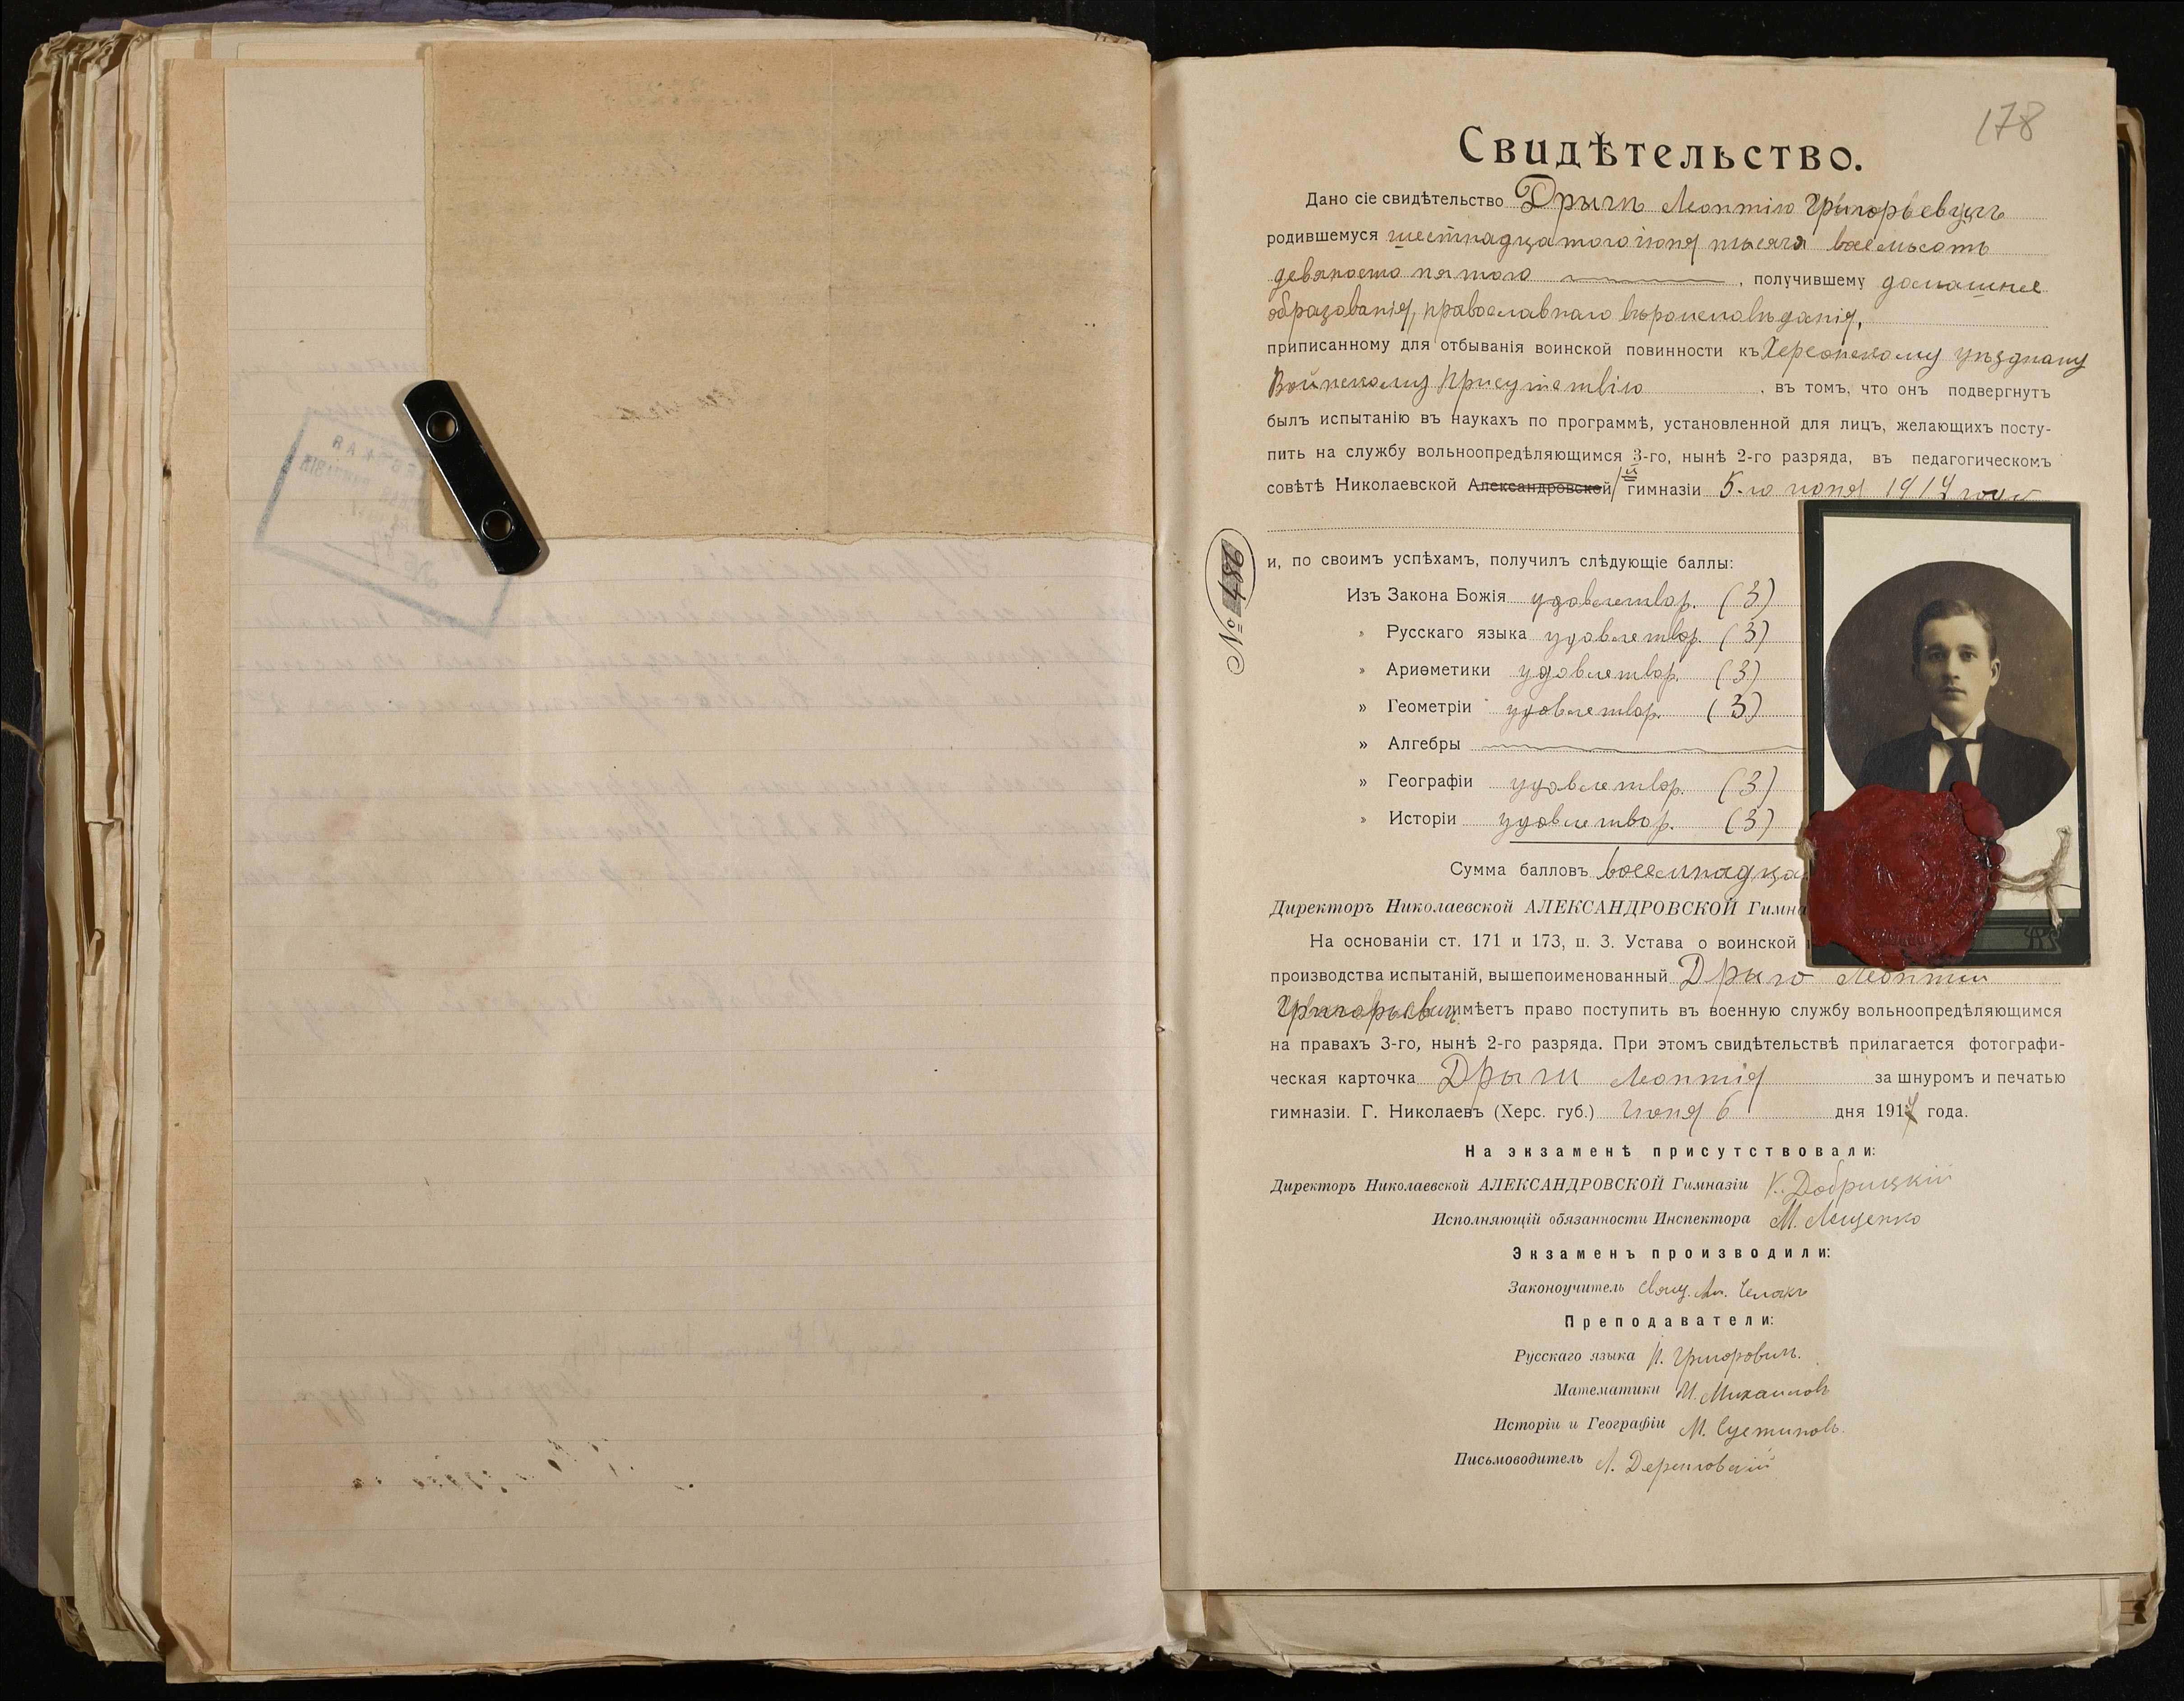 178
Свидѣтельство.
Дано сіе свидѣтельство Дрыгѣ Леонтію Григорьевичу
родившемуся шестнадцатого іюня тысяча восемьсотъ
девяносто пятого , получившему домашнее
образованія, православнаго вѣроисповѣданія,
приписанному для отбыванія воинской повинности къ Херсонскому уѣздному
Воинскому Присутствію , въ томъ, что онъ подвергнутъ
былъ испытанію въ наукахъ по программѣ, установленной для лицъ, желающихъ посту-
пить на службу вольноопредѣляющимся 3-го, нынѣ 2-го разряда, въ педагогическомъ
совѣтѣ Николаевской Александровской гимназіи 5-го іюня 1914 года
№ 486
и, по своимъ успѣхамъ, получилъ слѣдующіе баллы:
Изъ Закона Божія удовлетвор. (3)
„ Русскаго языка удовлетвор. (3)
„ Ариѳметики удовлетвор. (3)
„ Геометріи удовлетвор. (3)
„ Алгебры
„ Географіи удовлетвор. (3)
„ Исторіи удовлетвор. (3)
Сумма балловъ восемнадца
Директоръ Николаевской АЛЕКСАНДРОВСКОЙ Гимна
На основаніи ст. 171 и 173, п. 3. Устава о воинской
производства испытаній, вышепоименованный Дрыго Леонтій
Григорьевич имѣетъ право поступить въ военную службу вольноопредѣляющимся
на правахъ 3-го, нынѣ 2-го разряда. При этомъ свидѣтельствѣ прилагается фотографи-
ческая карточка Дрыги Леонтія за шнуромъ и печатью
гимназіи. Г. Николаевъ (Херс. губ.) іюня 6 дня 1914 года.
На экзаменѣ присутствовали:
Директоръ Николаевской АЛЕКСАНДРОВСКОЙ Гимназіи К. Добрицкій
Исполняющій обязанности Инспектора М. Лещенко
Экзаменъ производили:
Законоучитель Свящ.
Преподаватели:
Русскаго языка П. Григоровичъ.
Математики М. Михайловъ
Исторіи и Географіи М. Сцетиновъ.
Письмоводитель